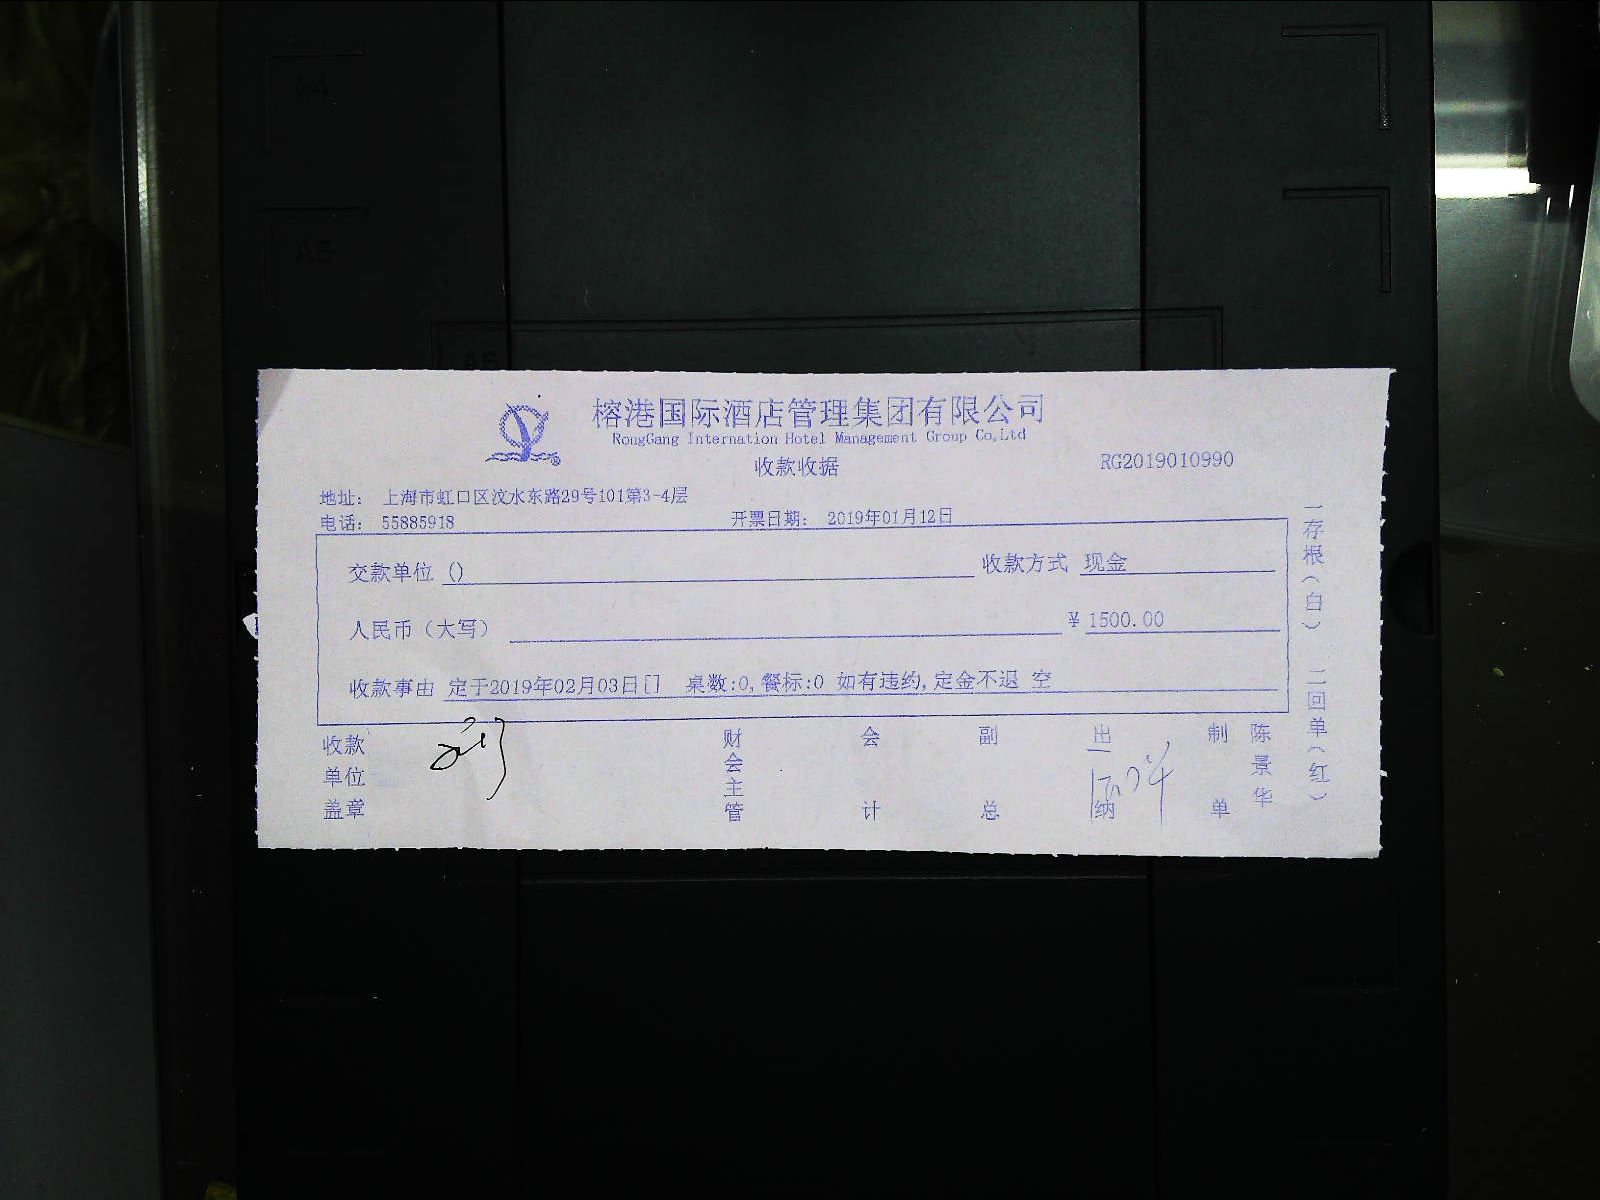 A4
A5
A6
榕港国际酒店管理集团有限公司
RongGang Internation Hotel Management Group Co,Ltd
收款收据
RG2019010990
地址: 上海市虹口区汶水东路29号101第3-4层
电话: 55885918 开票日期: 2019年01月12日
交款单位 () 收款方式 现金
人民币（大写） ¥ 1500.00
收款事由 定于2019年02月03日[] 桌数:0,餐标:0 如有违约,定金不退 空
收款单位盖章 财会主管 会计 副总 出纳 制单 陈景华
一存根（白） 二回单（红）